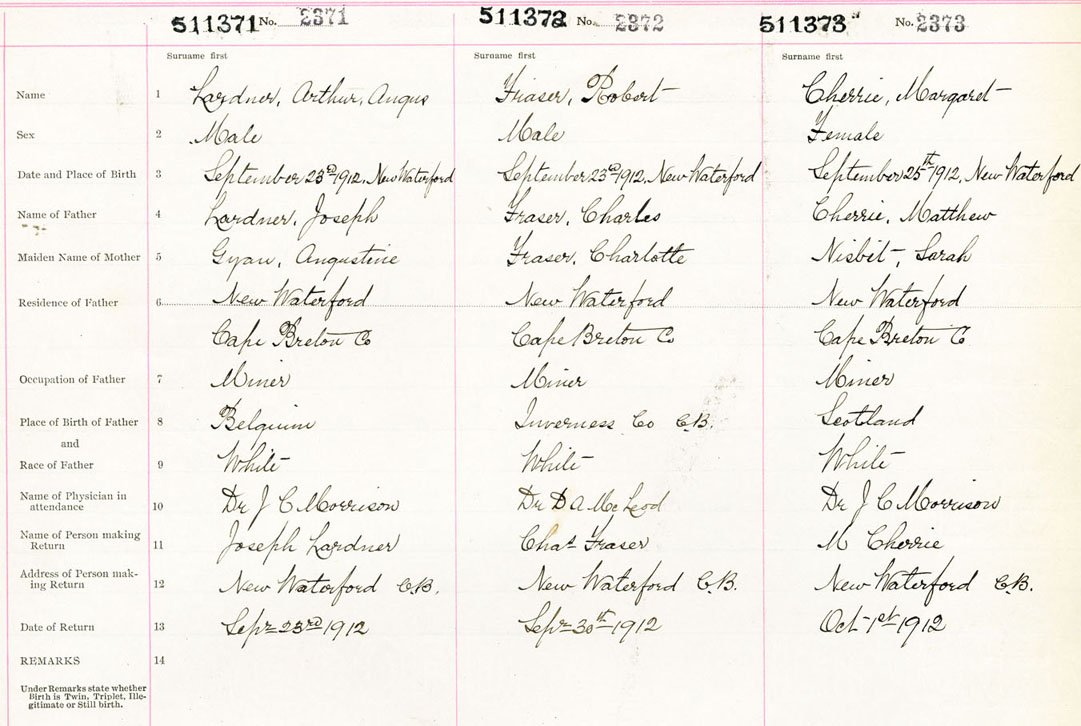 511371 No. 2371 511372 No. 2372 511373 No. 2373
Surname first Surname first Surname first
Name 1 Lardner, Arthur, Angus Fraser, Robert Cherrie, Margaret
Sex 2 Male Male Female
Date and Place of Birth 3 September 23rd 1912, New Waterford September 23rd 1912, New Waterford September 25th 1912, New Waterford
Name of Father 4 Lardner, Joseph Fraser, Charles Cherrie, Matthew
Maiden Name of Mother 5 Angustine Fraser, Charlotte Nisbit, Sarah
Residence of Father 6 New Waterford New Waterford New Waterford
Cape Breton Co Cape Breton Co Cape Breton Co
Occupation of Father 7 Miner Miner Miner
Place of Birth of Father 8 Belgium Inverness Co C.B. Scotland
and
Race of Father 9 White White White
Name of Physician in
attendance 10 Dr J C Morrison Dr D A McLeod Dr J C Morrison
Name of Person making
Return 11 Joseph Lardner Chas Fraser M Cherrie
Address of Person mak-
ing Return 12 New Waterford C.B. New Waterford C.B. New Waterford C.B.
Date of Return 13 Sepr 23rd 1912 Sepr 30th 1912 Oct 1st 1912
REMARKS 14
Under Remarks state whether
Birth is Twin, Triplet, Ille-
gitimate or Still birth.